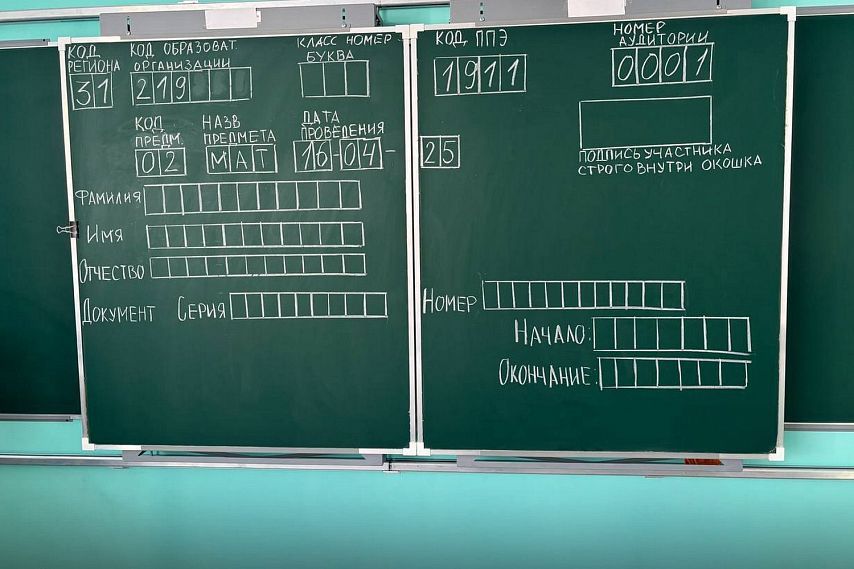 КОД РЕГИОНА
31
КОД ОБРАЗОВАТ. ОРГАНИЗАЦИИ
219
КЛАСС НОМЕР БУКВА
КОД ПРЕДМ.
02
НАЗВ ПРЕДМЕТА
МАТ
ДАТА ПРОВЕДЕНИЯ
16-04-
25
ФАМИЛИЯ
ИМЯ
ОТЧЕСТВО
ДОКУМЕНТ СЕРИЯ
КОД ППЭ
1911
НОМЕР АУДИТОРИИ
0001
ПОДПИСЬ УЧАСТНИКА
СТРОГО ВНУТРИ ОКОШКА
НОМЕР
НАЧАЛО:
ОКОНЧАНИЕ: